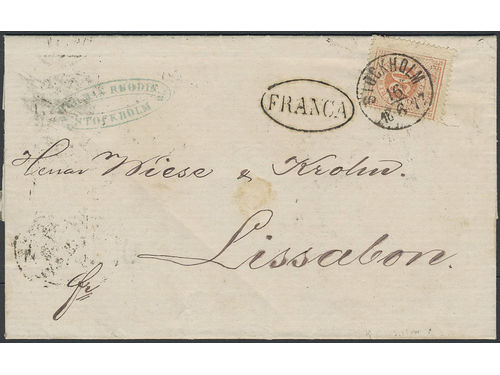 RHODIN
STOCKHOLM
FRANCA
STOCKHOLM
16
Herrar Wiese & Krohn.
Lissabon.
fr